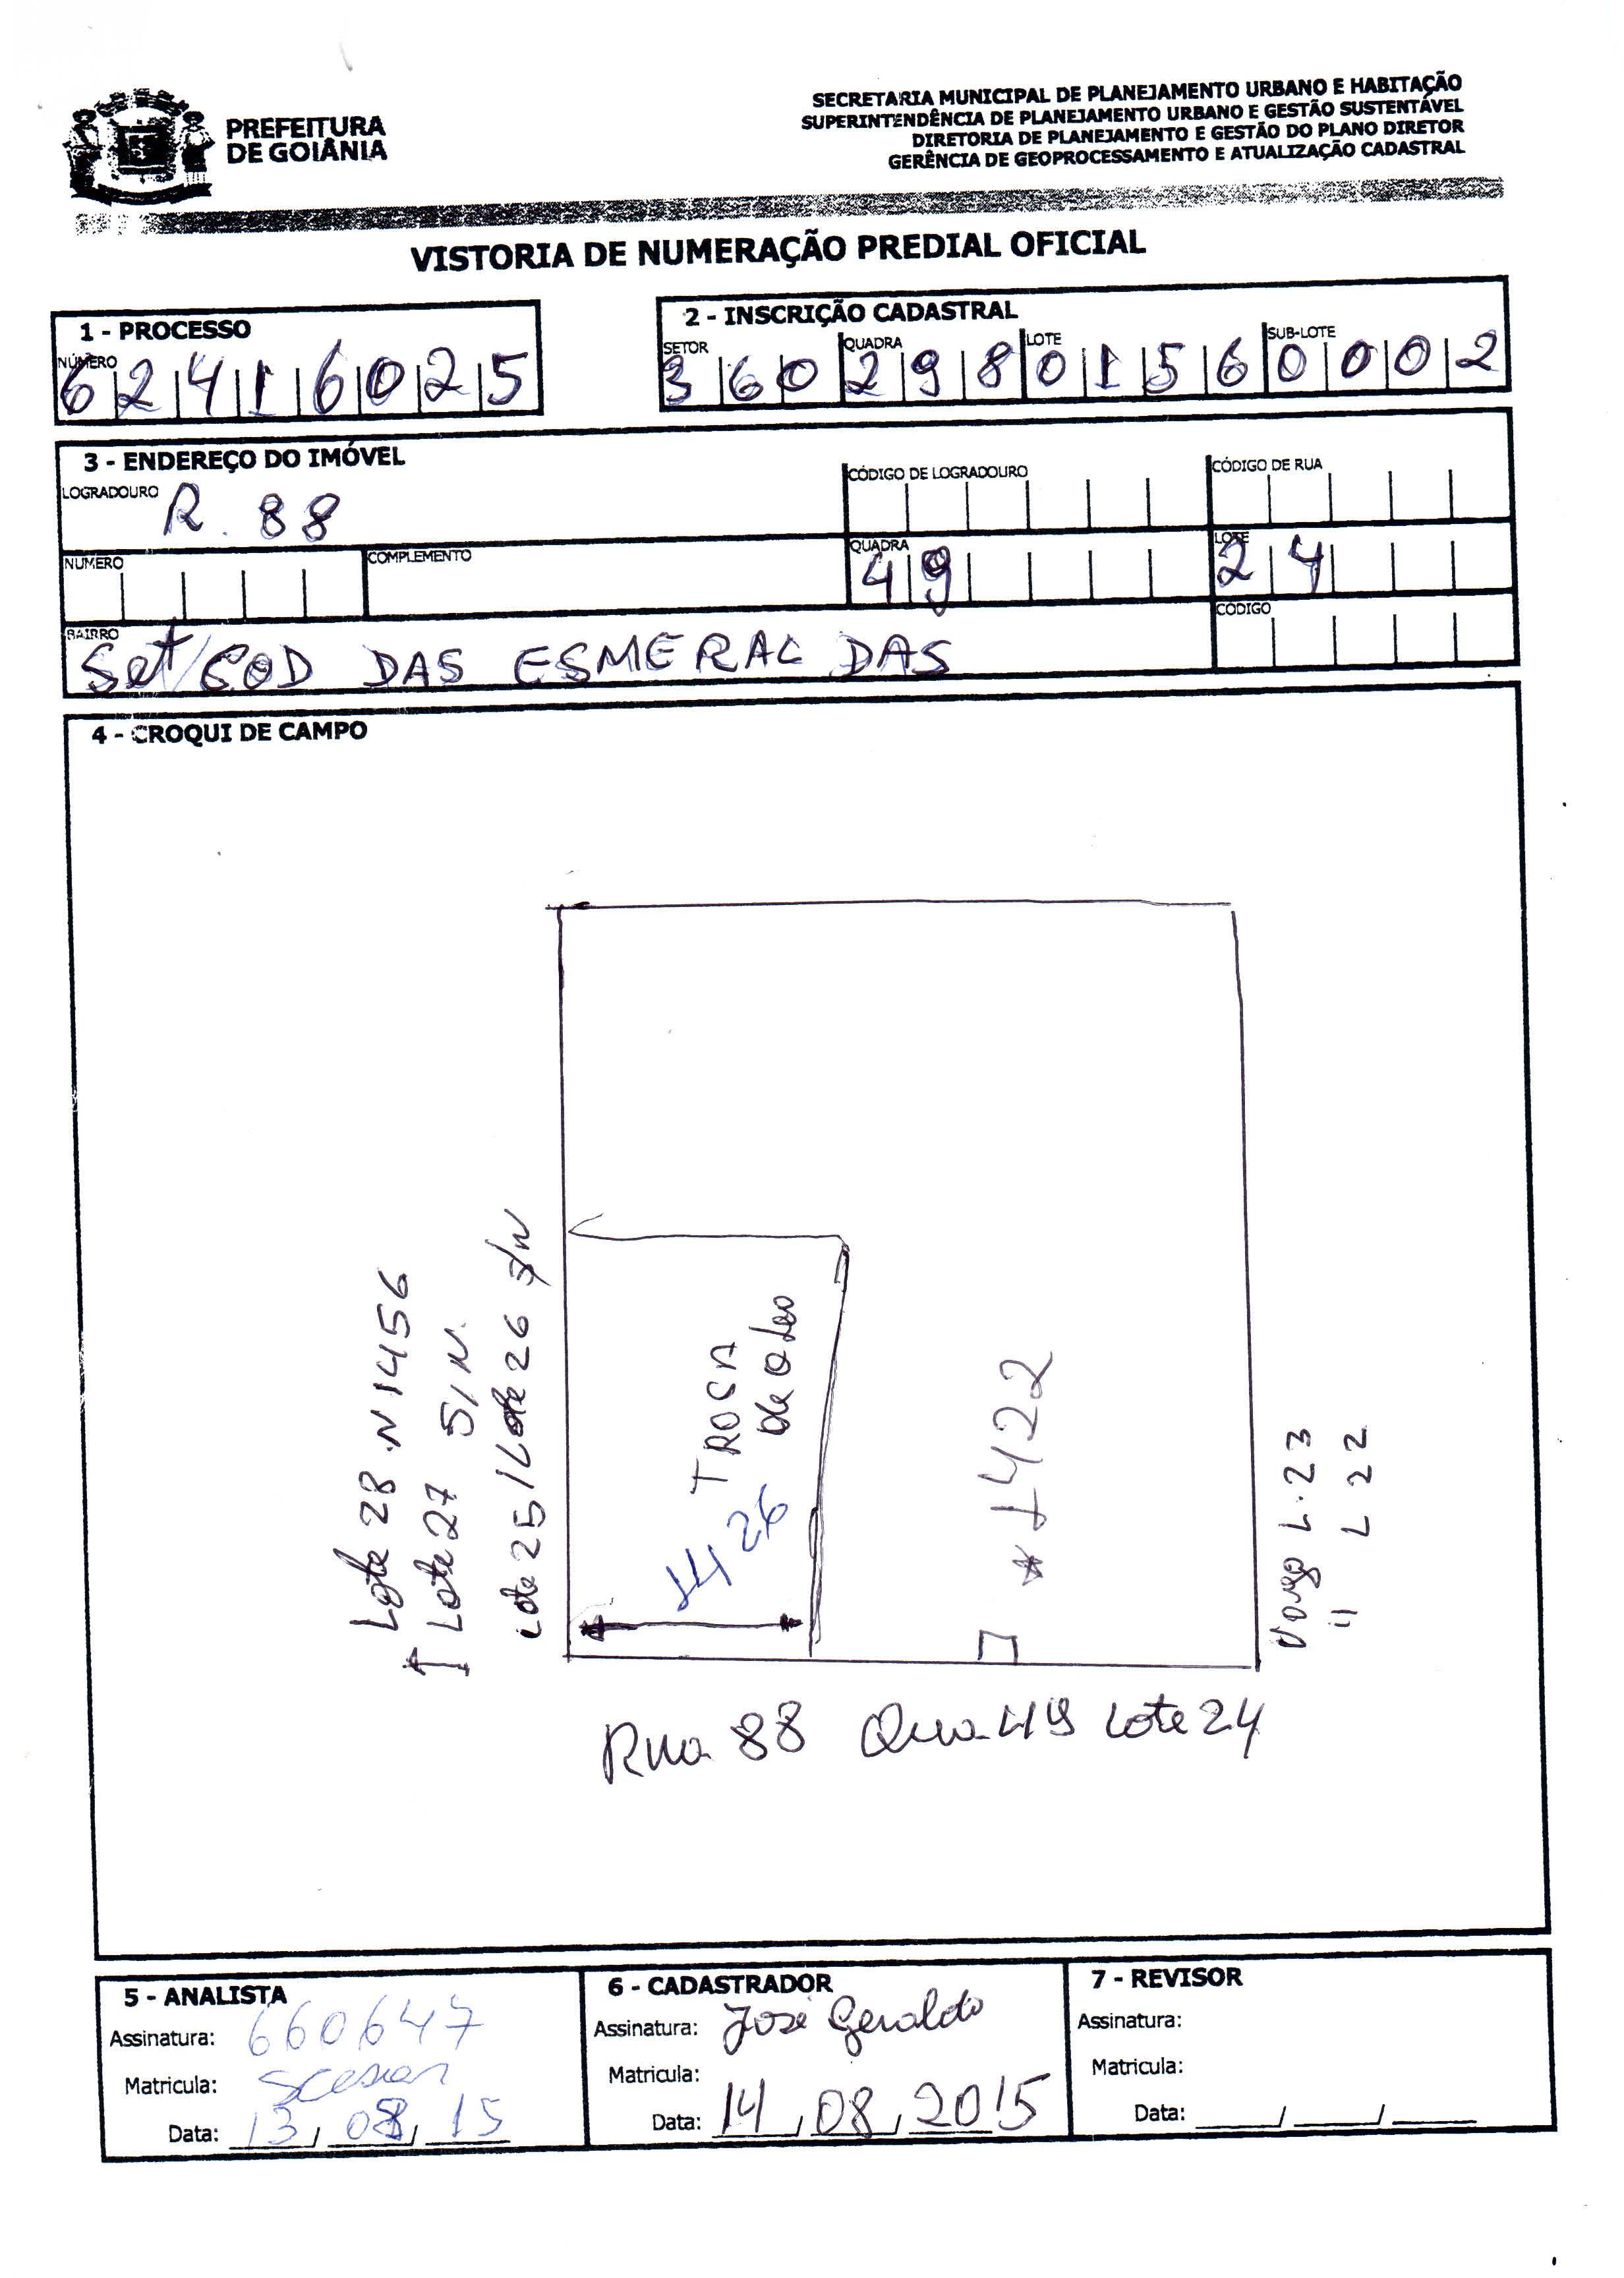 PREFEITURA
DE GOIÂNIA
SECRETARIA MUNICIPAL DE PLANEJAMENTO URBANO E HABITAÇÃO
SUPERINTENDÊNCIA DE PLANEJAMENTO URBANO E GESTÃO SUSTENTÁVEL
DIRETORIA DE PLANEJAMENTO E GESTÃO DO PLANO DIRETOR
GERÊNCIA DE GEOPROCESSAMENTO E ATUALIZAÇÃO CADASTRAL
VISTORIA DE NUMERAÇÃO PREDIAL OFICIAL
1 - PROCESSO
NÚMERO
6 2 4 1 6 0 2 5
2 - INSCRIÇÃO CADASTRAL
SETOR QUADRA LOTE SUB-LOTE
3 6 0 2 9 8 0 1 5 6 0 0 0 2
3 - ENDEREÇO DO IMÓVEL
LOGRADOURO R. 88
CÓDIGO DE LOGRADOURO
CÓDIGO DE RUA
NÚMERO
COMPLEMENTO
QUADRA 49
LOTE 24
BAIRRO Set/COD DAS ESMERAL DAS
CÓDIGO
4 - CROQUI DE CAMPO
Lote 28 N 1456
Lote 27 S/N.
Lote 25 / Lote 26 S/N
TROCA
de oleo
1426
* 1422
Vago L. 23
11 L 22
Rua 88 Qua 49 Lote 24
5 - ANALISTA
Assinatura: 660647
Matricula:
Data: 13 / 08 / 15
6 - CADASTRADOR
Assinatura: José Geraldo
Matricula:
Data: 14 / 08 / 2015
7 - REVISOR
Assinatura:
Matricula:
Data: ____/____/____